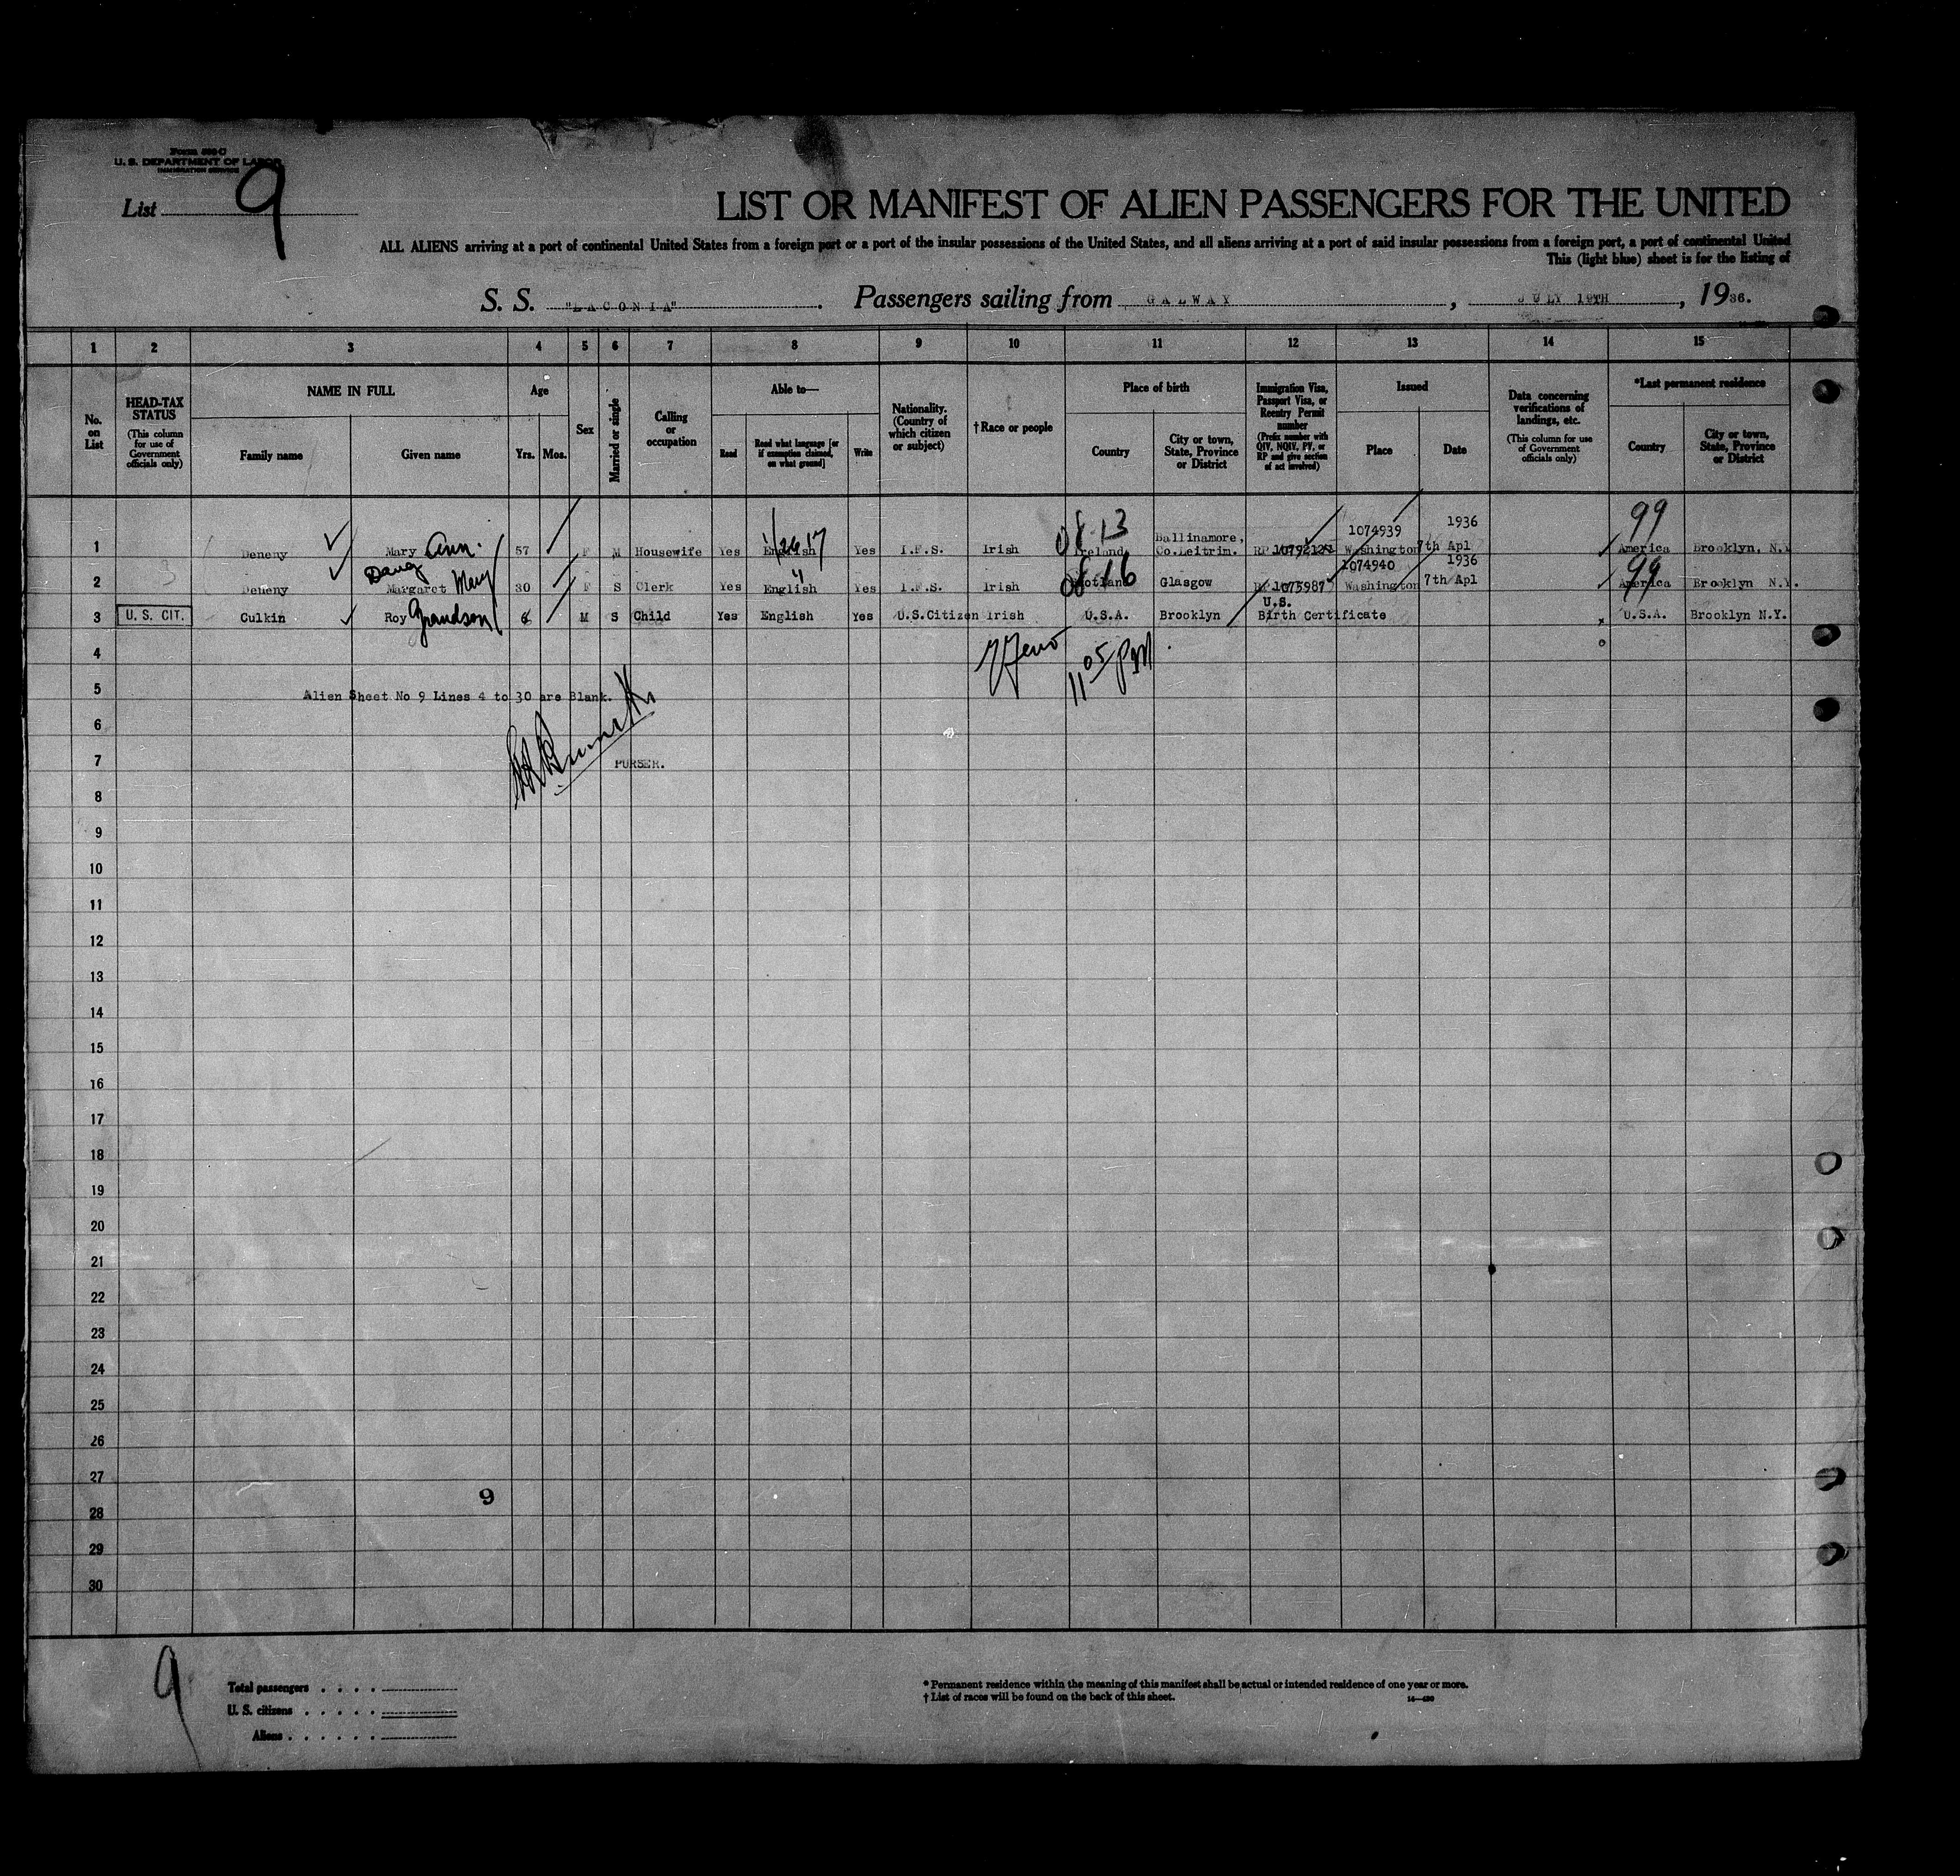 Form 500-C
U. S. DEPARTMENT OF LABOR
IMMIGRATION SERVICE
List 9
LIST OR MANIFEST OF ALIEN PASSENGERS FOR THE UNITED
ALL ALIENS arriving at a port of continental United States from a foreign port or a port of the insular possessions of the United States, and all aliens arriving at a port of said insular possessions from a foreign port, a port of continental United
This (light blue) sheet is for the listing of
S. S. "LACONIA". Passengers sailing from GALWAY, JULY 19TH, 1936.
1 2 3 4 5 6 7 8 9 10 11 12 13 14 15
No. on List
HEAD-TAX STATUS (This column for use of Government officials only)
NAME IN FULL
Family name Given name
Age
Yrs. Mos.
Sex
Married or single
Calling or occupation
Able to—
Read Read what language [or if exemption claimed, on what ground] Write
Nationality. (Country of which citizen or subject)
†Race or people
Place of birth
Country City or town, State, Province or District
Immigration Visa, Passport Visa, or Reentry Permit number (Prefix number with QIV, NQIV, PV, or RP and give section of act involved)
Issued
Place Date
Data concerning verifications of landings, etc. (This column for use of Government officials only)
*Last permanent residence
Country City or town, State, Province or District
08-13 1074939 1936 99
1 Deneny Mary Ann. 57 F M Housewife Yes English Yes I.F.S. Irish Ireland Ballinamore, Co.Leitrim. RP Washington 7th Apl America Brooklyn, N.Y
Daug 1074940 1936 99
2 Deneny Margaret Mary 30 F S Clerk Yes English Yes I.F.S. Irish Glasgow RP 1075987 Washington 7th Apl America Brooklyn N.Y.
3 U. S. CIT. Culkin Roy Grandson 6 M S Child Yes English Yes U.S.Citizen Irish U.S.A. Brooklyn U.S. Birth Certificate U.S.A. Brooklyn N.Y.
4
11 05 PM
5 Alien Sheet No 9 Lines 4 to 30 are Blank.
6
7 PURSER.
8
9
10
11
12
13
14
15
16
17
18
19
20
21
22
23
24
25
26
27
9
28
29
30
9
Total passengers . . . .
U. S. citizens . . . . .
Aliens . . . . . .
* Permanent residence within the meaning of this manifest shall be actual or intended residence of one year or more.
† List of races will be found on the back of this sheet.